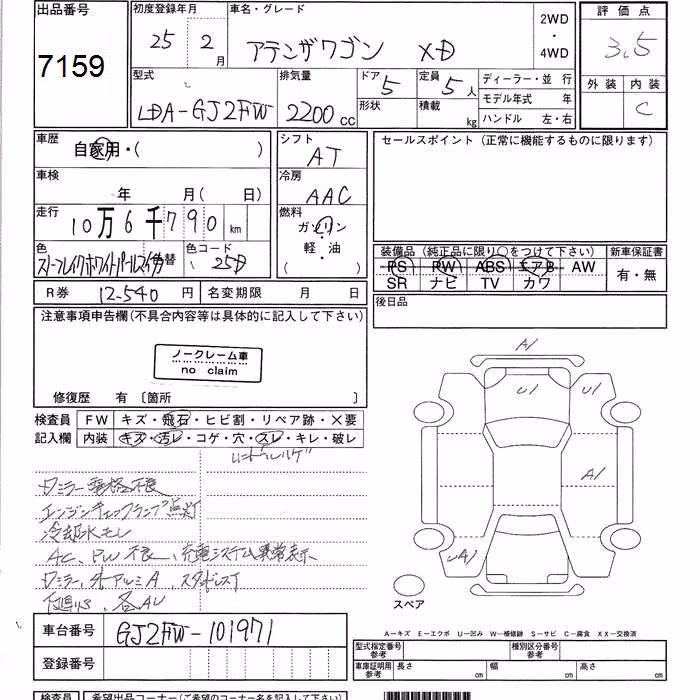 出品番号
7159
初度登録年月
25 年 2 月
車名・グレード
アテンザワゴン XD
2WD
・
4WD
評価点
3.5
外装 内装
C
型式
LDA-GJ2FW
排気量
2200 cc
ドア 5
形状
定員 5 人
積載 kg
ディーラー・並行
モデル年式 年
ハンドル 左・右
車歴
自家用・( )
車検
年 月( 日)
走行
10万6千790 km
色
色替
色コード
25D
シフト
AT
冷房
AAC
燃料
ガソリン
軽・油
( )
セールスポイント(正常に機能するものに限ります)
装備品(純正品に限り○をつけて下さい)
PS PW ABS エアB AW
SR ナビ TV カワ
新車保証書
有・無
R券 12-540 円
名変期限 月 日
後日品
注意事項申告欄(不具合内容等は具体的に記入して下さい)
ノークレーム車
no claim
修復歴 有〔箇所 〕
検査員 FW キズ・飛石・ヒビ割・リペア跡・×要
記入欄 内装 キズ・汚レ・コゲ・穴・スレ・キレ・破レ
エンジンチェックランプ点灯
冷却水モレ
AC、PW不良、充電システム異常表示
A1
U1
U1
A1
UA1
スペア
A-キズ E-エクボ U-凹み W-補修跡 S-サビ C-腐食 XX-交換済
車台番号 GJ2FW-101971
登録番号
型式指定番号
参考
種別区分番号
参考
車庫証明用
参考
長さ 幅 高さ
検査員
希望出品コーナー(ご希望のコーナー名を記入して下さい)